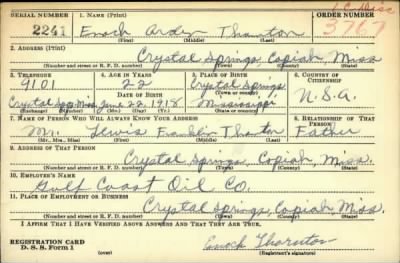 SERIAL NUMBER 1. NAME (Print) ORDER NUMBER
2241 Enoch Arden Thornton 3767
(First) (Middle) (Last)
2. ADDRESS (Print)
Crystal Springs, Copiah, Miss
(Number and street or R. F. D. number) (Town) (County) (State)
3. TELEPHONE 4. AGE IN YEARS 5. PLACE OF BIRTH 6. COUNTRY OF CITIZENSHIP
9101 22 Crystal Springs
DATE OF BIRTH (Town or county)
Crystal Spgs Miss June 22, 1918 Mississippi U.S.A.
(Exchange) (Number) (Mo.) (Day) (Yr.) (State or country)
7. NAME OF PERSON WHO WILL ALWAYS KNOW YOUR ADDRESS 8. RELATIONSHIP OF THAT PERSON
Mr. Lewis Franklin Thornton Father
(Mr., Mrs., Miss) (First) (Middle) (Last)
9. ADDRESS OF THAT PERSON
Crystal Springs, Copiah, Miss.
(Number and street or R. F. D. number) (Town) (County) (State)
10. EMPLOYER'S NAME
Gulf Coast Oil Co.
11. PLACE OF EMPLOYMENT OR BUSINESS
Crystal Springs, Copiah, Miss.
(Number and street or R. F. D. number) (Town) (County) (State)
I AFFIRM THAT I HAVE VERIFIED ABOVE ANSWERS AND THAT THEY ARE TRUE.
REGISTRATION CARD
D. S. S. Form 1 Enoch Thornton
(over) (Registrant's signature)